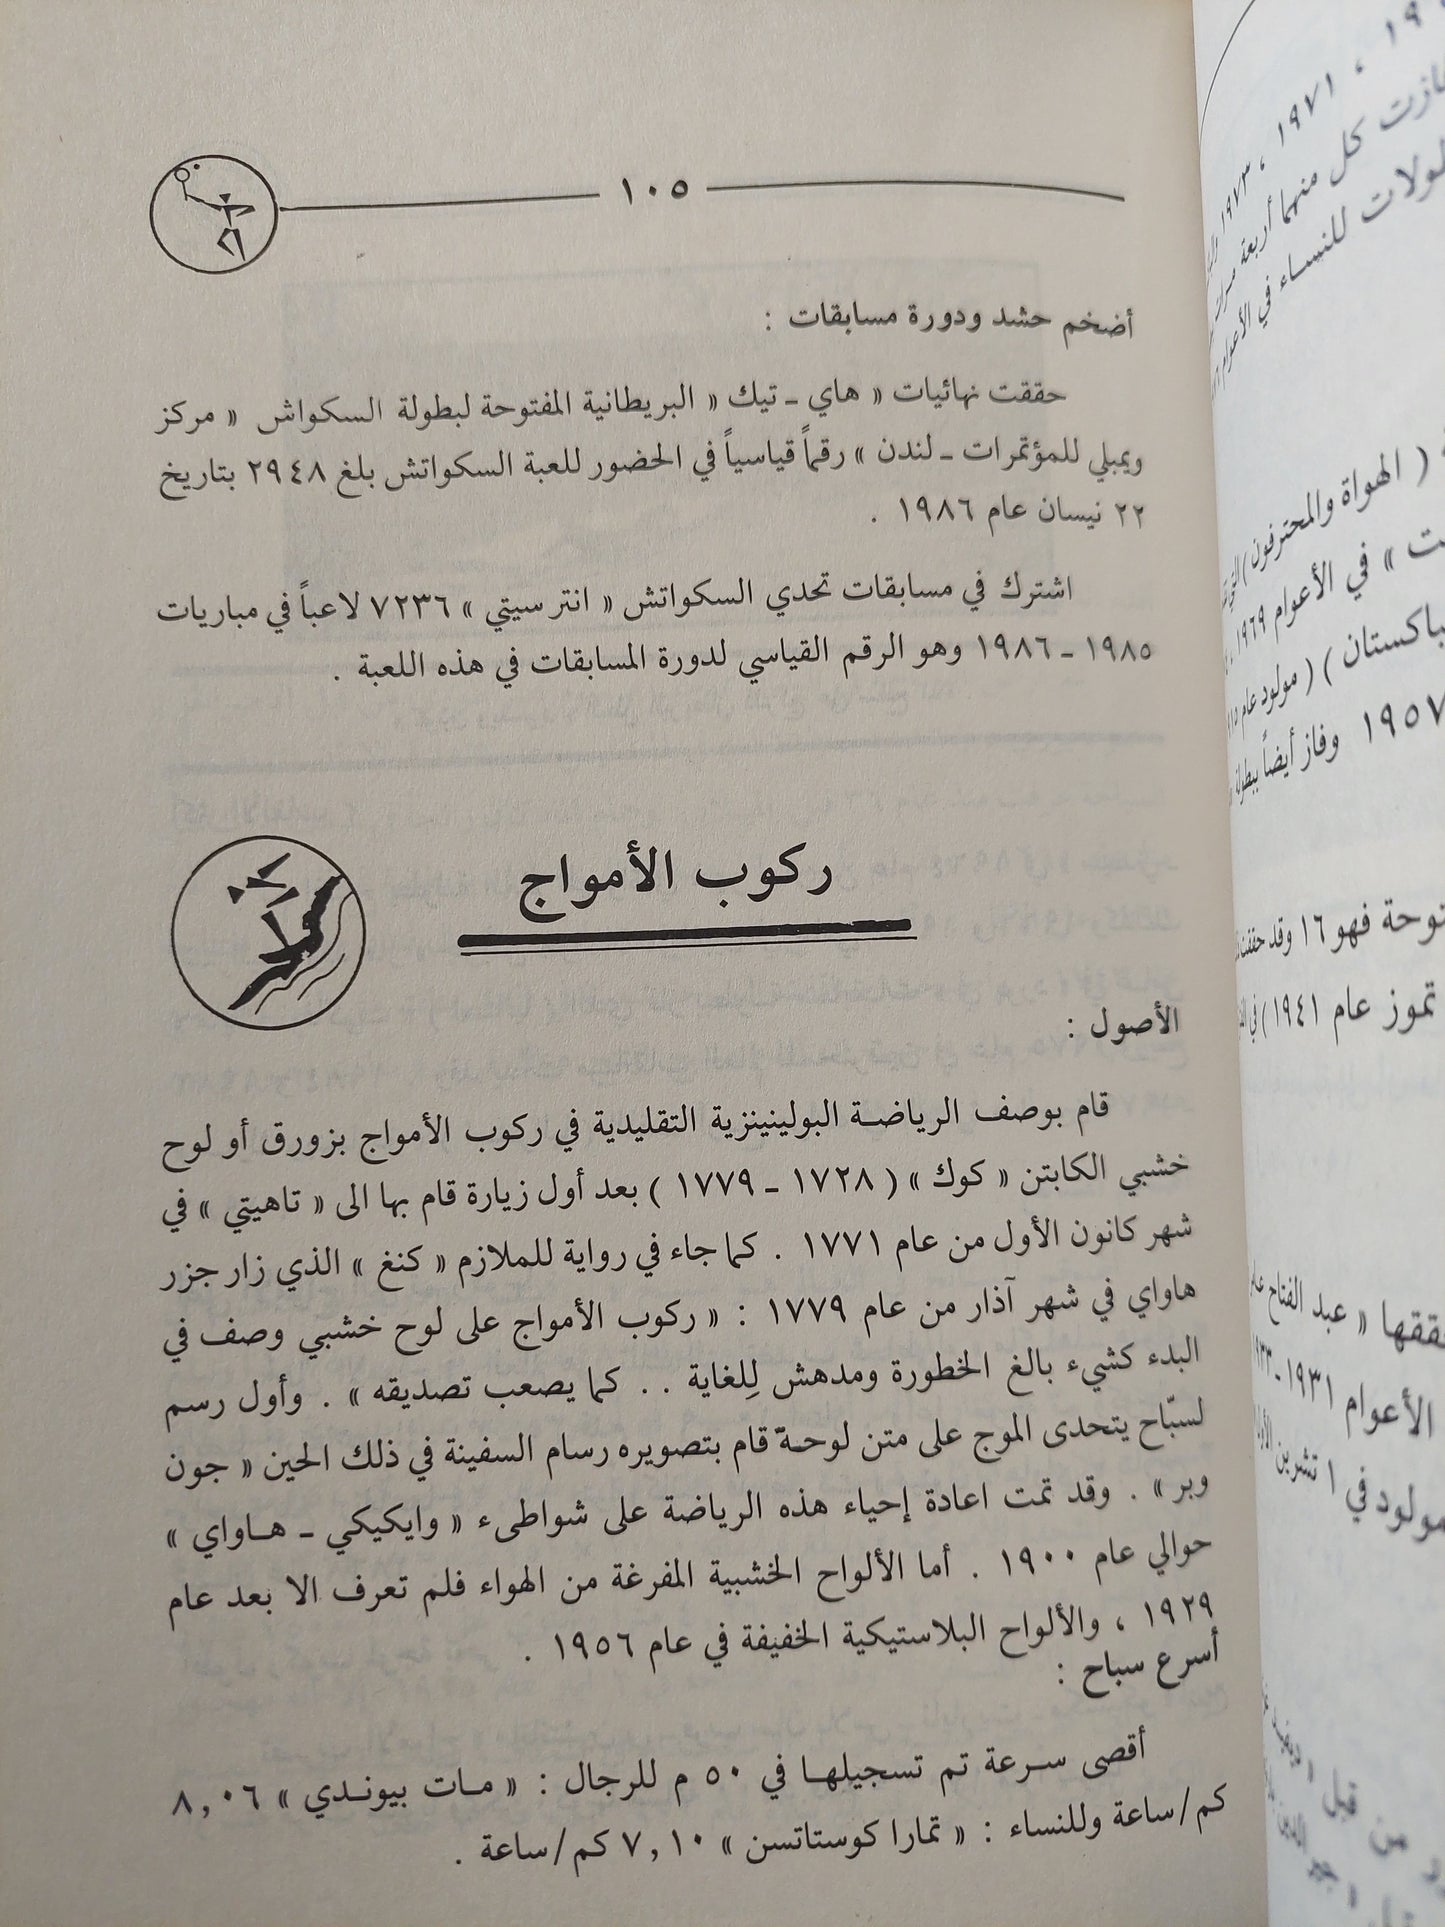 ١٠٥
أضخم حشد ودورة مسابقات :
حققت نهائيات « هاي ـ تيك » البريطانية المفتوحة لبطولة السكواش « مركز
ويمبلي للمؤتمرات ـ لندن » رقماً قياسياً في الحضور للعبة السكواتش بلغ ٢٩٤٨ بتاريخ
٢٢ نيسان عام ١٩٨٦ .
اشترك في مسابقات تحدي السكواتش « انتر سيتي » ٧٢٣٦ لاعباً في مباريات
١٩٨٥ ـ ١٩٨٦ وهو الرقم القياسي لدورة المسابقات في هذه اللعبة .
ركوب الأمواج
الأصول :
قام بوصف الرياضة البولينينزية التقليدية في ركوب الأمواج بزورق أو لوح
خشبي الكابتن « كوك » ( ١٧٢٨ ـ ١٧٧٩ ) بعد أول زيارة قام بها الى « تاهيتي » في
شهر كانون الأول من عام ١٧٧١ . كما جاء في رواية للملازم « كنغ » الذي زار جزر
هاواي في شهر آذار من عام ١٧٧٩ : « ركوب الأمواج على لوح خشبي وصف في
البدء كشيء بالغ الخطورة ومدهش لِلغاية . . كما يصعب تصديقه » . وأول رسم
لسبّاح يتحدى الموج على متن لوحة قام بتصويره رسام السفينة في ذلك الحين « جون
وبر » . وقد تمت اعادة إحياء هذه الرياضة على شواطىء « وايكيكي ـ هاواي »
حوالي عام ١٩٠٠ . أما الألواح الخشبية المفرغة من الهواء فلم تعرف الا بعد عام
١٩٢٩ ، والألواح البلاستيكية الخفيفة في عام ١٩٥٦ .
أسرع سباح :
أقصى سرعة تم تسجيلها في ٥٠ م للرجال : « مات بيوندي » ٨,٠٦
كم/ساعة وللنساء : « تمارا كوستاتسن » ٧,١٠ كم/ساعة .
١٩٧١ ، ١٩٧٣
كل منهما أربعة
للنساء في الأعوام
( الهواة والمحترفون )
» في الأعوام ١٩٦٩
) ( مولود عام
١٩٥٧ وفاز أيضاً
فهو ١٦ وقد حققت
تموز عام ١٩٤١ ) في
« عبد الفتاح
الأعوام ١٩٣١ ـ
في ١ تشرين
من قبل